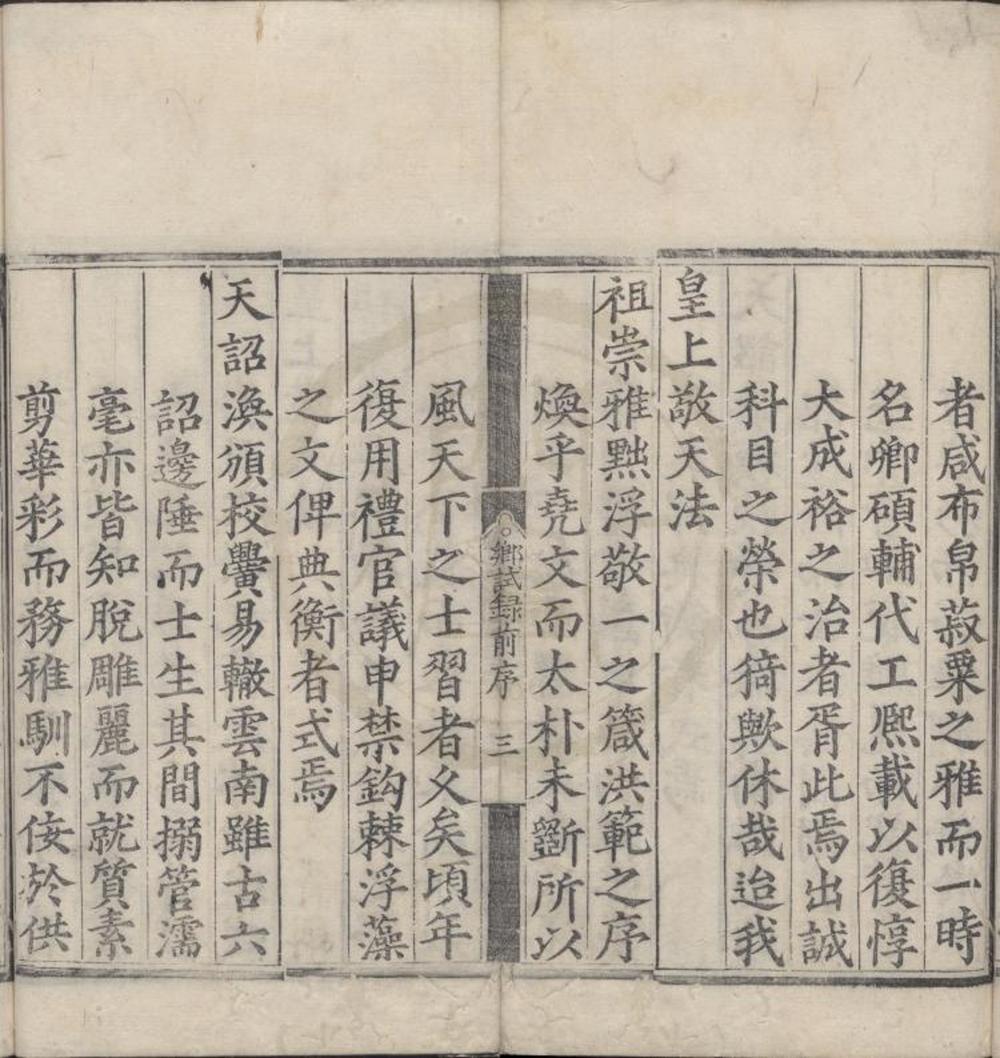 者咸布帛菽粟之雅而一時
名卿碩輔代工熈載以復惇
大成裕之治者胥此焉出誠
科目之榮也猗歟休哉迨我
皇上敬天法
祖崇雅黜浮敬一之箴洪範之序
煥乎堯文而太朴未斵所以
鄉試録前序 三
風天下之士習者久矣頃年
復用禮官議申禁鈎棘浮藻
之文俾典衡者式焉
天詔渙頒校黌易轍雲南雖古六
詔邊陲而士生其間搦管濡
毫亦皆知脫雕麗而就質素
剪華彩而務雅馴不佞於供